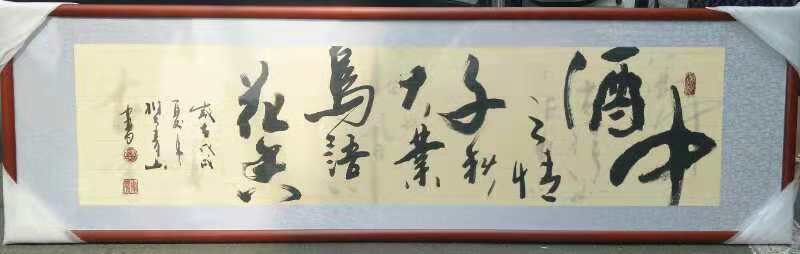 中
酒
之情
千秋
大業
鳥語
花香
歲在戊戌
夏月
青山
書